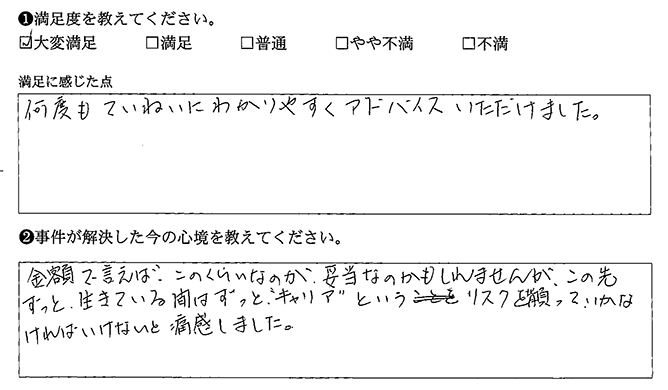 ❶満足度を教えてください。
☑大変満足 □満足 □普通 □やや不満 □不満
満足に感じた点
何度もていねいにわかりやすくアドバイスいただけました。
❷事件が解決した今の心境を教えてください。
金額で言えば、このくらいなのが、妥当なのかもしれませんが、この先
ずっと、生きている間はずっと、"キャリア"という リスクを願っていかな
ければいけないと痛感しました。